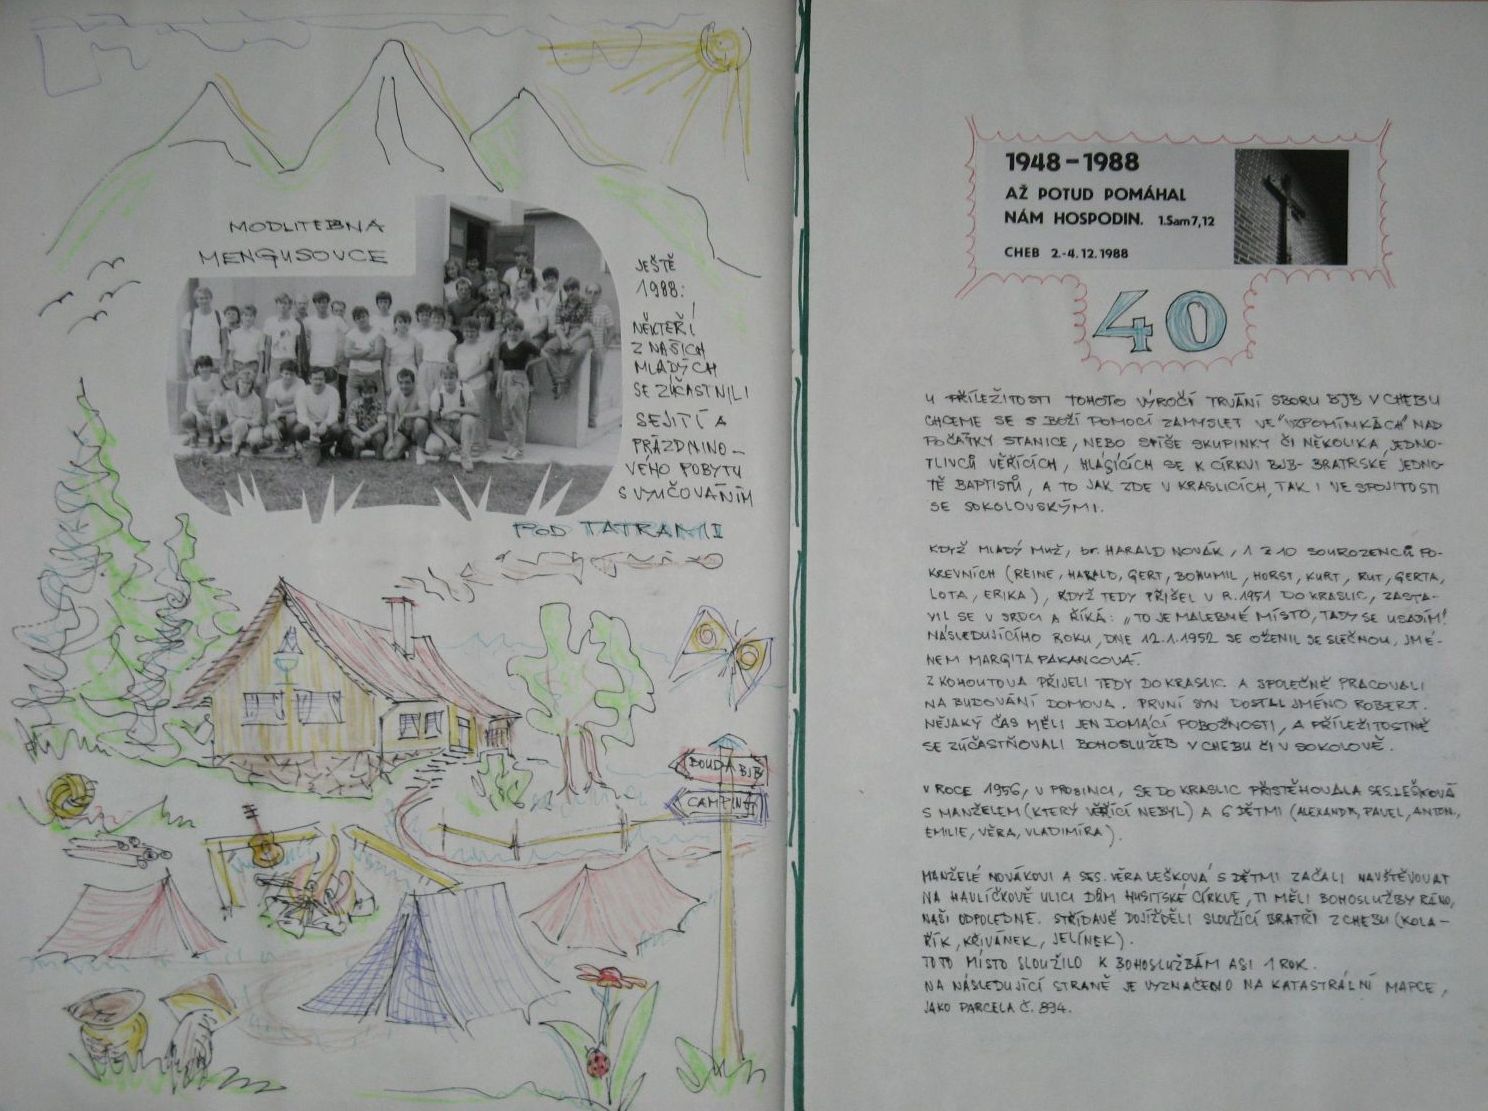 MODLITEBNA
MENGUSOVCE
JEŠTĚ
1988:
NĚKTEŘÍ
Z NAŠICH
MLADÝCH
SE ZÚČASTNILI
SEJITÍ A
PRÁZDNINO-
VÉHO POBYTU
S VYUČOVÁNÍM
POD TATRAMI
BOUDA BJB
CAMPING
1948-1988
AŽ POTUD POMÁHAL
NÁM HOSPODIN. 1.Sam 7,12
CHEB 2.-4.12.1988
40
U PŘÍLEŽITOSTI TOHOTO VÝROČÍ TRVÁNÍ SBORU BJB V CHEBU
CHCEME SE S BOŽÍ POMOCÍ ZAMYSLET VE "VZPOMÍNKÁCH" NAD
POČÁTKY STANICE, NEBO SPÍŠE SKUPINKY ČI NĚKOLIKA JEDNO-
TLIVCŮ VĚŘÍCÍCH, HLÁSÍCÍCH SE K CÍRKVI BJB- BRATRSKÉ JEDNO-
TĚ BAPTISTŮ, A TO JAK ZDE V KRASLICÍCH, TAK I VE SPOJITOSTI
SE SOKOLOVSKÝMI.
KDYŽ MLADÝ MUŽ, br. HARALD NOVÁK, 1 Z 10 SOUROZENCŮ PO-
KREVNÍCH (REINE, HARALD, GERT, BOHUMIL, HORST, KURT, RUT, GERTA,
LOTA, ERIKA), KDYŽ TEDY PŘIŠEL V R. 1951 DO KRASLIC, ZASTA-
VIL SE V SRDCI A ŘÍKÁ: „TO JE MALEBNÉ MÍSTO, TADY SE USADÍM!
NÁSLEDUJÍCÍHO ROKU, DNE 12.1.1952 SE OŽENIL SE SLEČNOU, JMÉ-
NEM MARGITA PAKANCOVÁ.
Z KOHOUTOVA PŘIJELI TEDY DO KRASLIC A SPOLEČNĚ PRACOVALI
NA BUDOVÁNÍ DOMOVA. PRVNÍ SYN DOSTAL JMÉNO ROBERT.
NĚJAKÝ ČAS MĚLI JEN DOMÁCÍ POBOŽNOSTI, A PŘÍLEŽITOSTNĚ
SE ZÚČASTŇOVALI BOHOSLUŽEB V CHEBU ČI V SOKOLOVĚ.
V ROCE 1956, V PROSINCI, SE DO KRASLIC PŘISTĚHOVALA SES. LEŠKOVÁ
S MANŽELEM (KTERÝ VĚŘÍCÍ NEBYL) A 6 DĚTMI (ALEXANDR, PAVEL, ANTON.,
EMILIE, VĚRA, VLADIMÍRA).
MANŽELÉ NOVÁKOVI A SES. VĚRA LEŠKOVÁ S DĚTMI ZAČALI NAVŠTĚVOVAT
NA HAVLÍČKOVĚ ULICI DŮM HUSITSKÉ CÍRKVE, TI MĚLI BOHOSLUŽBY RÁNO,
NAŠI ODPOLEDNE. STŘÍDAVĚ DOJÍŽDĚLI SLOUŽÍCÍ BRATŘI Z CHEBU (KOLA-
ŘÍK, KŘIVÁNEK, JELÍNEK).
TOTO MÍSTO SLOUŽILO K BOHOSLUŽBÁM ASI 1 ROK.
NA NÁSLEDUJÍCÍ STRANĚ JE VYZNAČENO NA KATASTRÁLNÍ MAPCE,
JAKO PARCELA Č. 894.